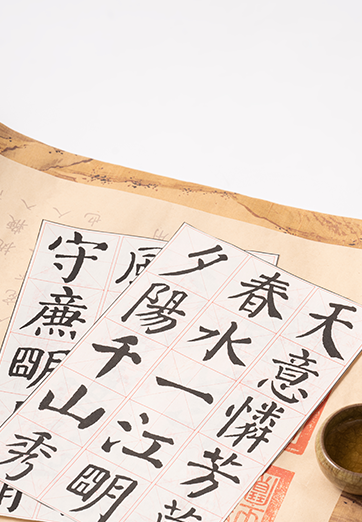 天意憐芳
春水一江明
夕陽千山秀
守廉明